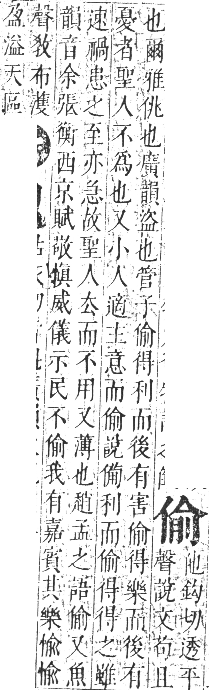 偷
他鈎切透平
聲說文苟且
也爾雅佻也廣韻盜也管子偷得利而後有害偷得樂而後有
憂者聖人不爲也又小人適主意而偷說備利而偷得得之雖
速禍患之至亦急故聖人去而不用又薄也趙孟之語偷又魚
韻音余張衡西京賦敬愼威儀示民不偷我有嘉賓其樂愉愉
聲敎布濩
盈溢天區